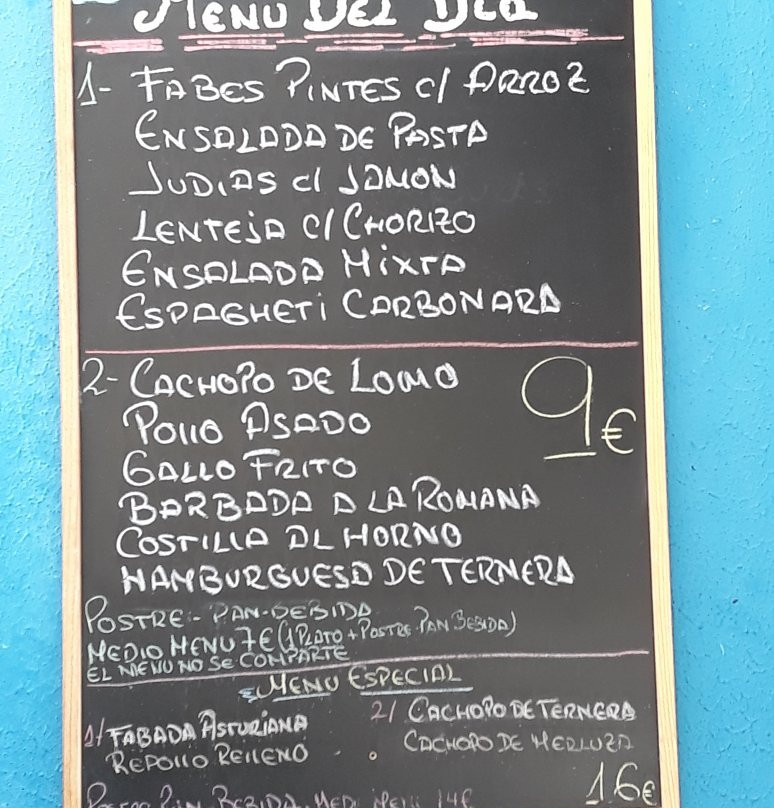 MENU DEL DIA
1- FABES PINTES c/ ARROZ
ENSALADA DE PASTA
JUDIAS c/ JAMON
LENTEJA c/ CHORIZO
ENSALADA MIXTA
ESPAGHETI CARBONARA
2- CACHOPO DE LOMO
POLLO ASADO
GALLO FRITO
BARBADA A LA ROMANA
COSTILLA AL HORNO
HAMBURGUESA DE TERNERA
9€
POSTRE - PAN - BEBIDA
MEDIO MENU 7€ (1 PLATO + POSTRE · PAN BEBIDA)
EL MENU NO SE COMPARTE
MENU ESPECIAL
1/ FABADA ASTURIANA
REPOLLO RELLENO
2/ CACHOPO DE TERNERA
CACHOPO DE MERLUZA
16€
PAN BEBIDA 14€